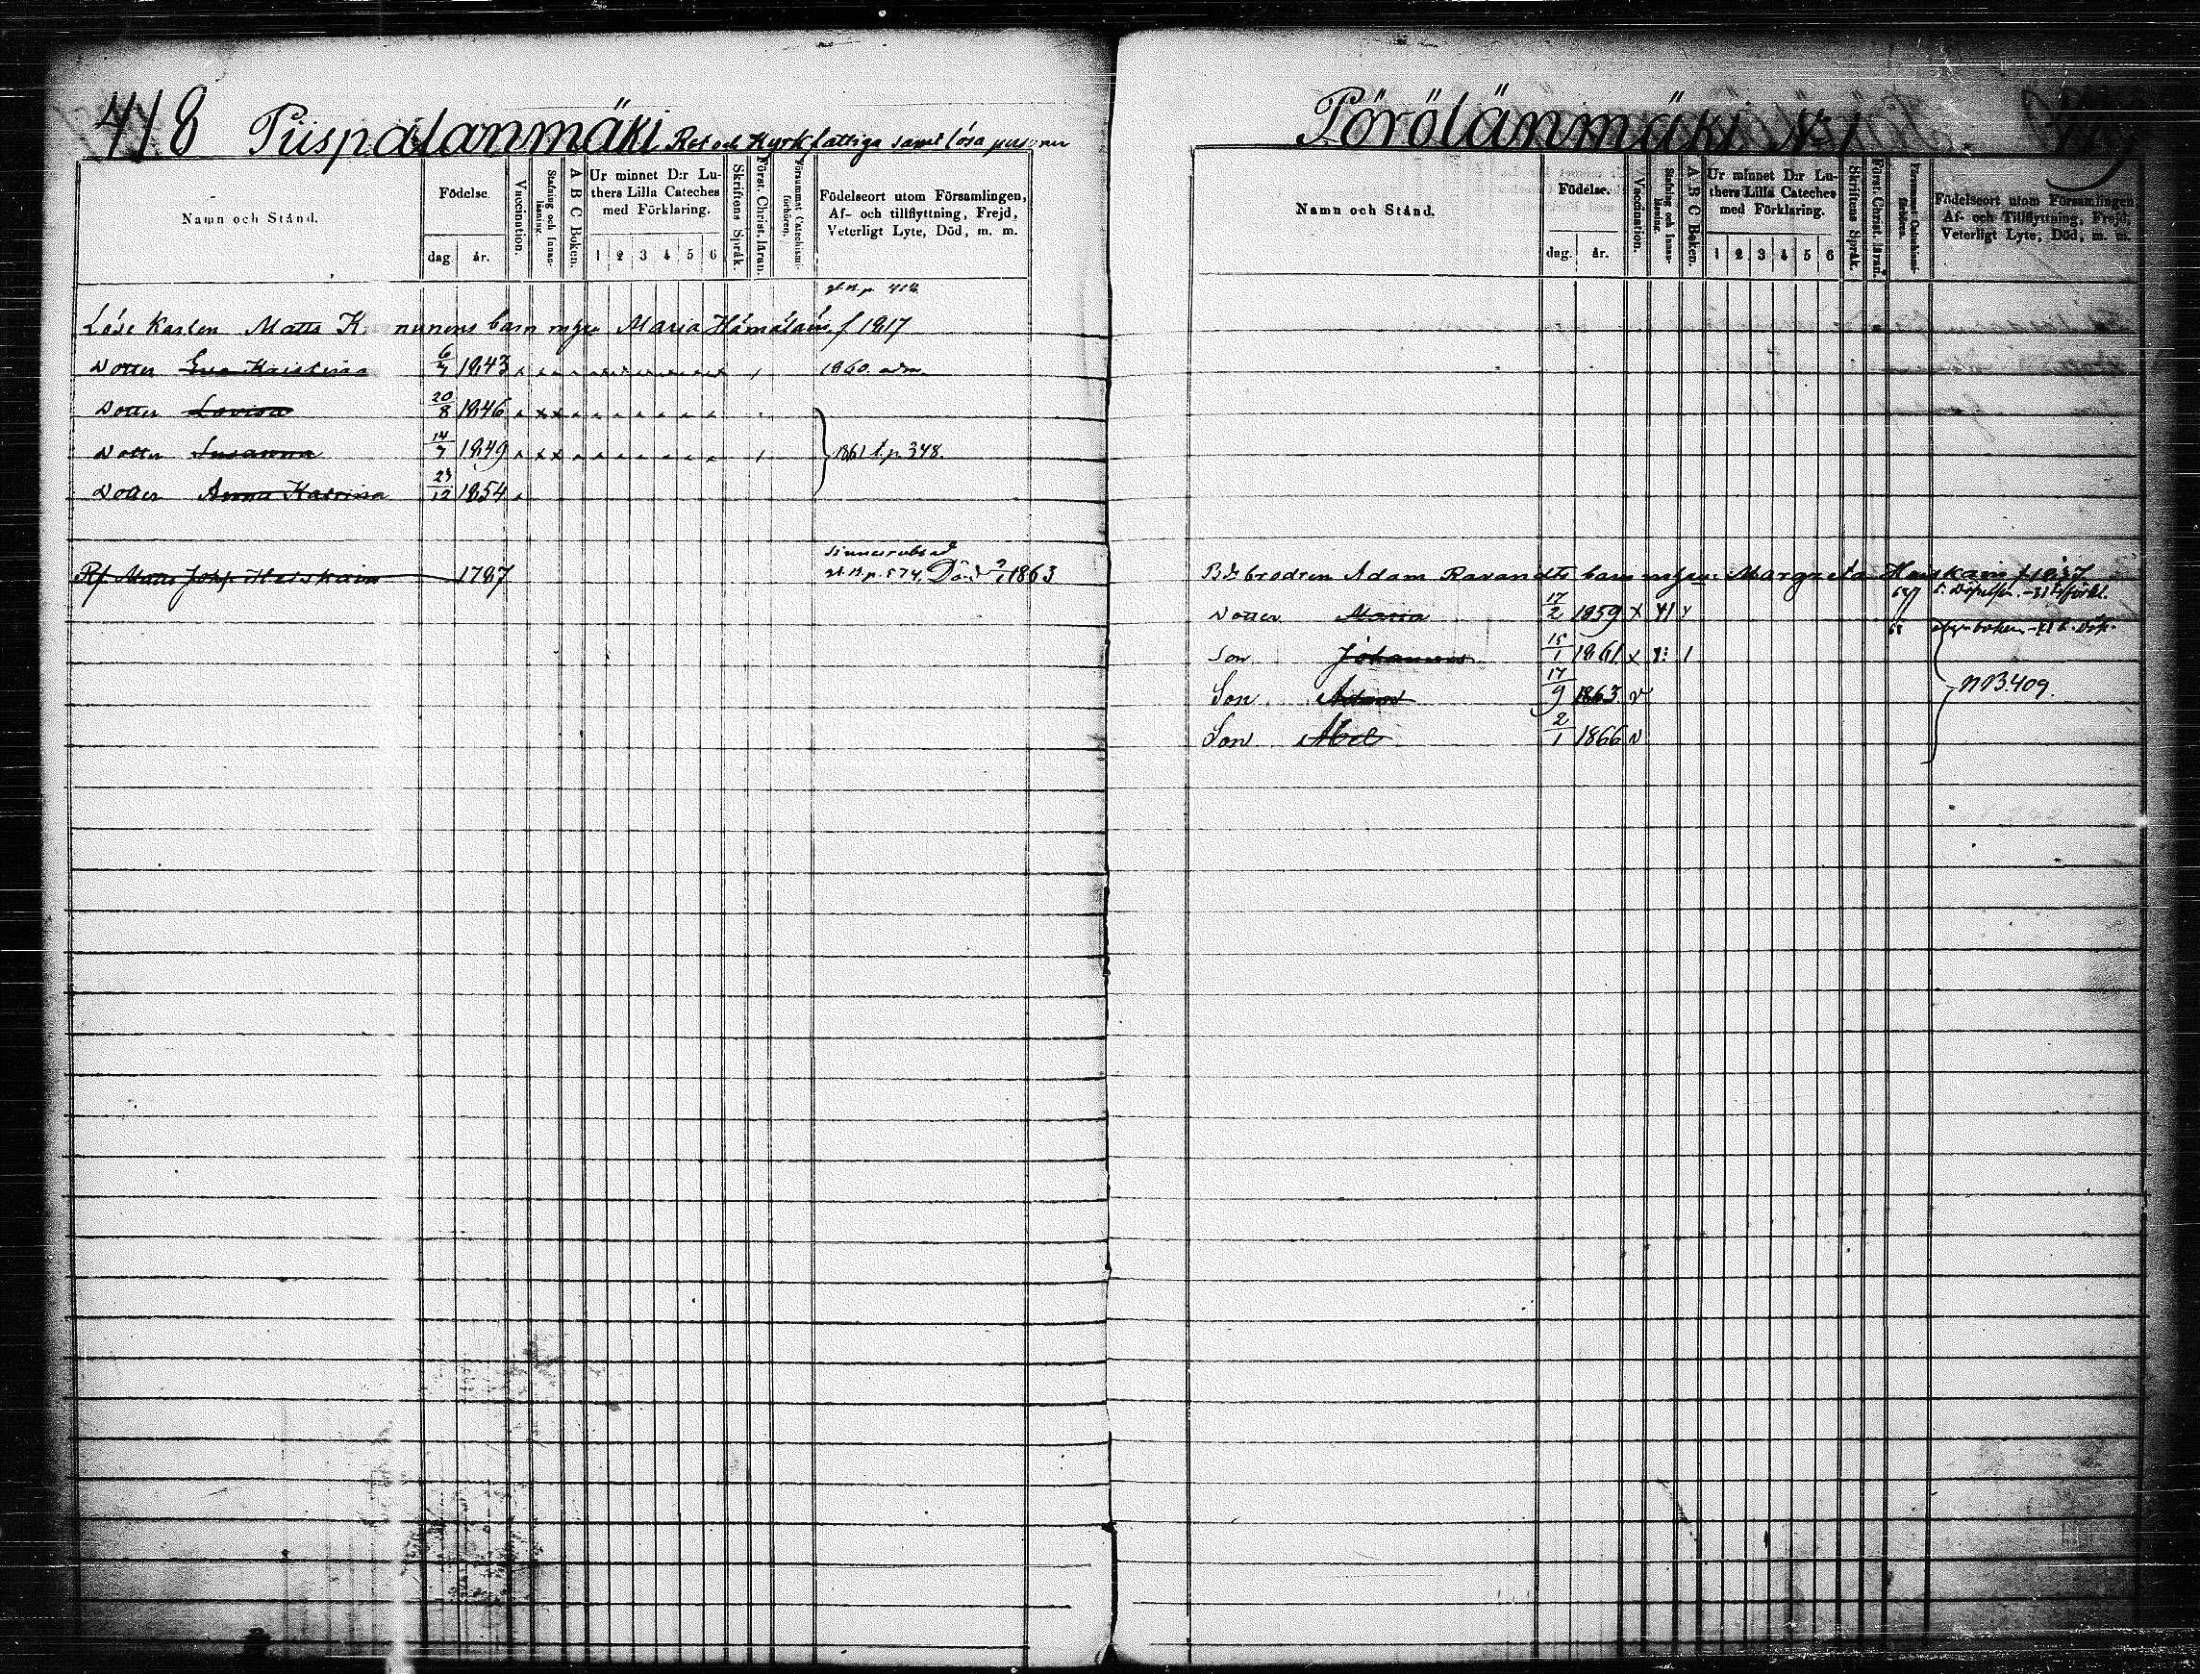 418 Piispalanmäki Rot och Kyrkfattiga samt lösa personer
Namn och Stånd.
Födelse.
dag år.
Vaccination.
Stafning och Innanläsning
A B C Boken.
Ur minnet D:r Luthers Lilla Cateches med Förklaring.
1 2 3 4 5 6
Skriftens Språk.
Först. Christ. läran.
Försummat Catechismiförhören.
Födelseort utom Församlingen,
Af- och tillflyttning, Frejd,
Veterligt Lyte, Död, m. m.
gl. B. p. 414
Löse Karlen Matts nunens barn m hu Maria Hämäläin f 1817
Dotter Eva Kristina 6/7 1843 1860. adm.
Dotter Lovisa 20/8 1846
Dotter Susanna 14/7 1849 1861 l. p. 348.
Dotter Anna Katrina 1854
Sinnesrubbad
Rf. Matts Johp. Heiskain 1787 gl. B. p. 574. Död 1863
Pörölänmäki No 1 419
Namn och Stånd.
Födelse.
dag. år.
Vaccination.
Stafning och Innanläsning
A B C Boken.
Ur minnet D:r Luthers Lilla Cateches med Förklaring.
1 2 3 4 5 6
Skriftens Språk.
Först. Christ. läran.
Försummat Catechismiförhören.
Födelseort utom Församlingen,
Af- och Tillflyttning, Frejd,
Veterligt Lyte, Död, m. m.
brodren Adam Ravandts barn m hu: Margreta Heiskain f. 1837.
Dotter Maria 17/2 1859 x
Son Johannes 15/1 1861 x
Son Adam 17/9 1863 v NB. 409.
Son Abel 2/1 1866 v